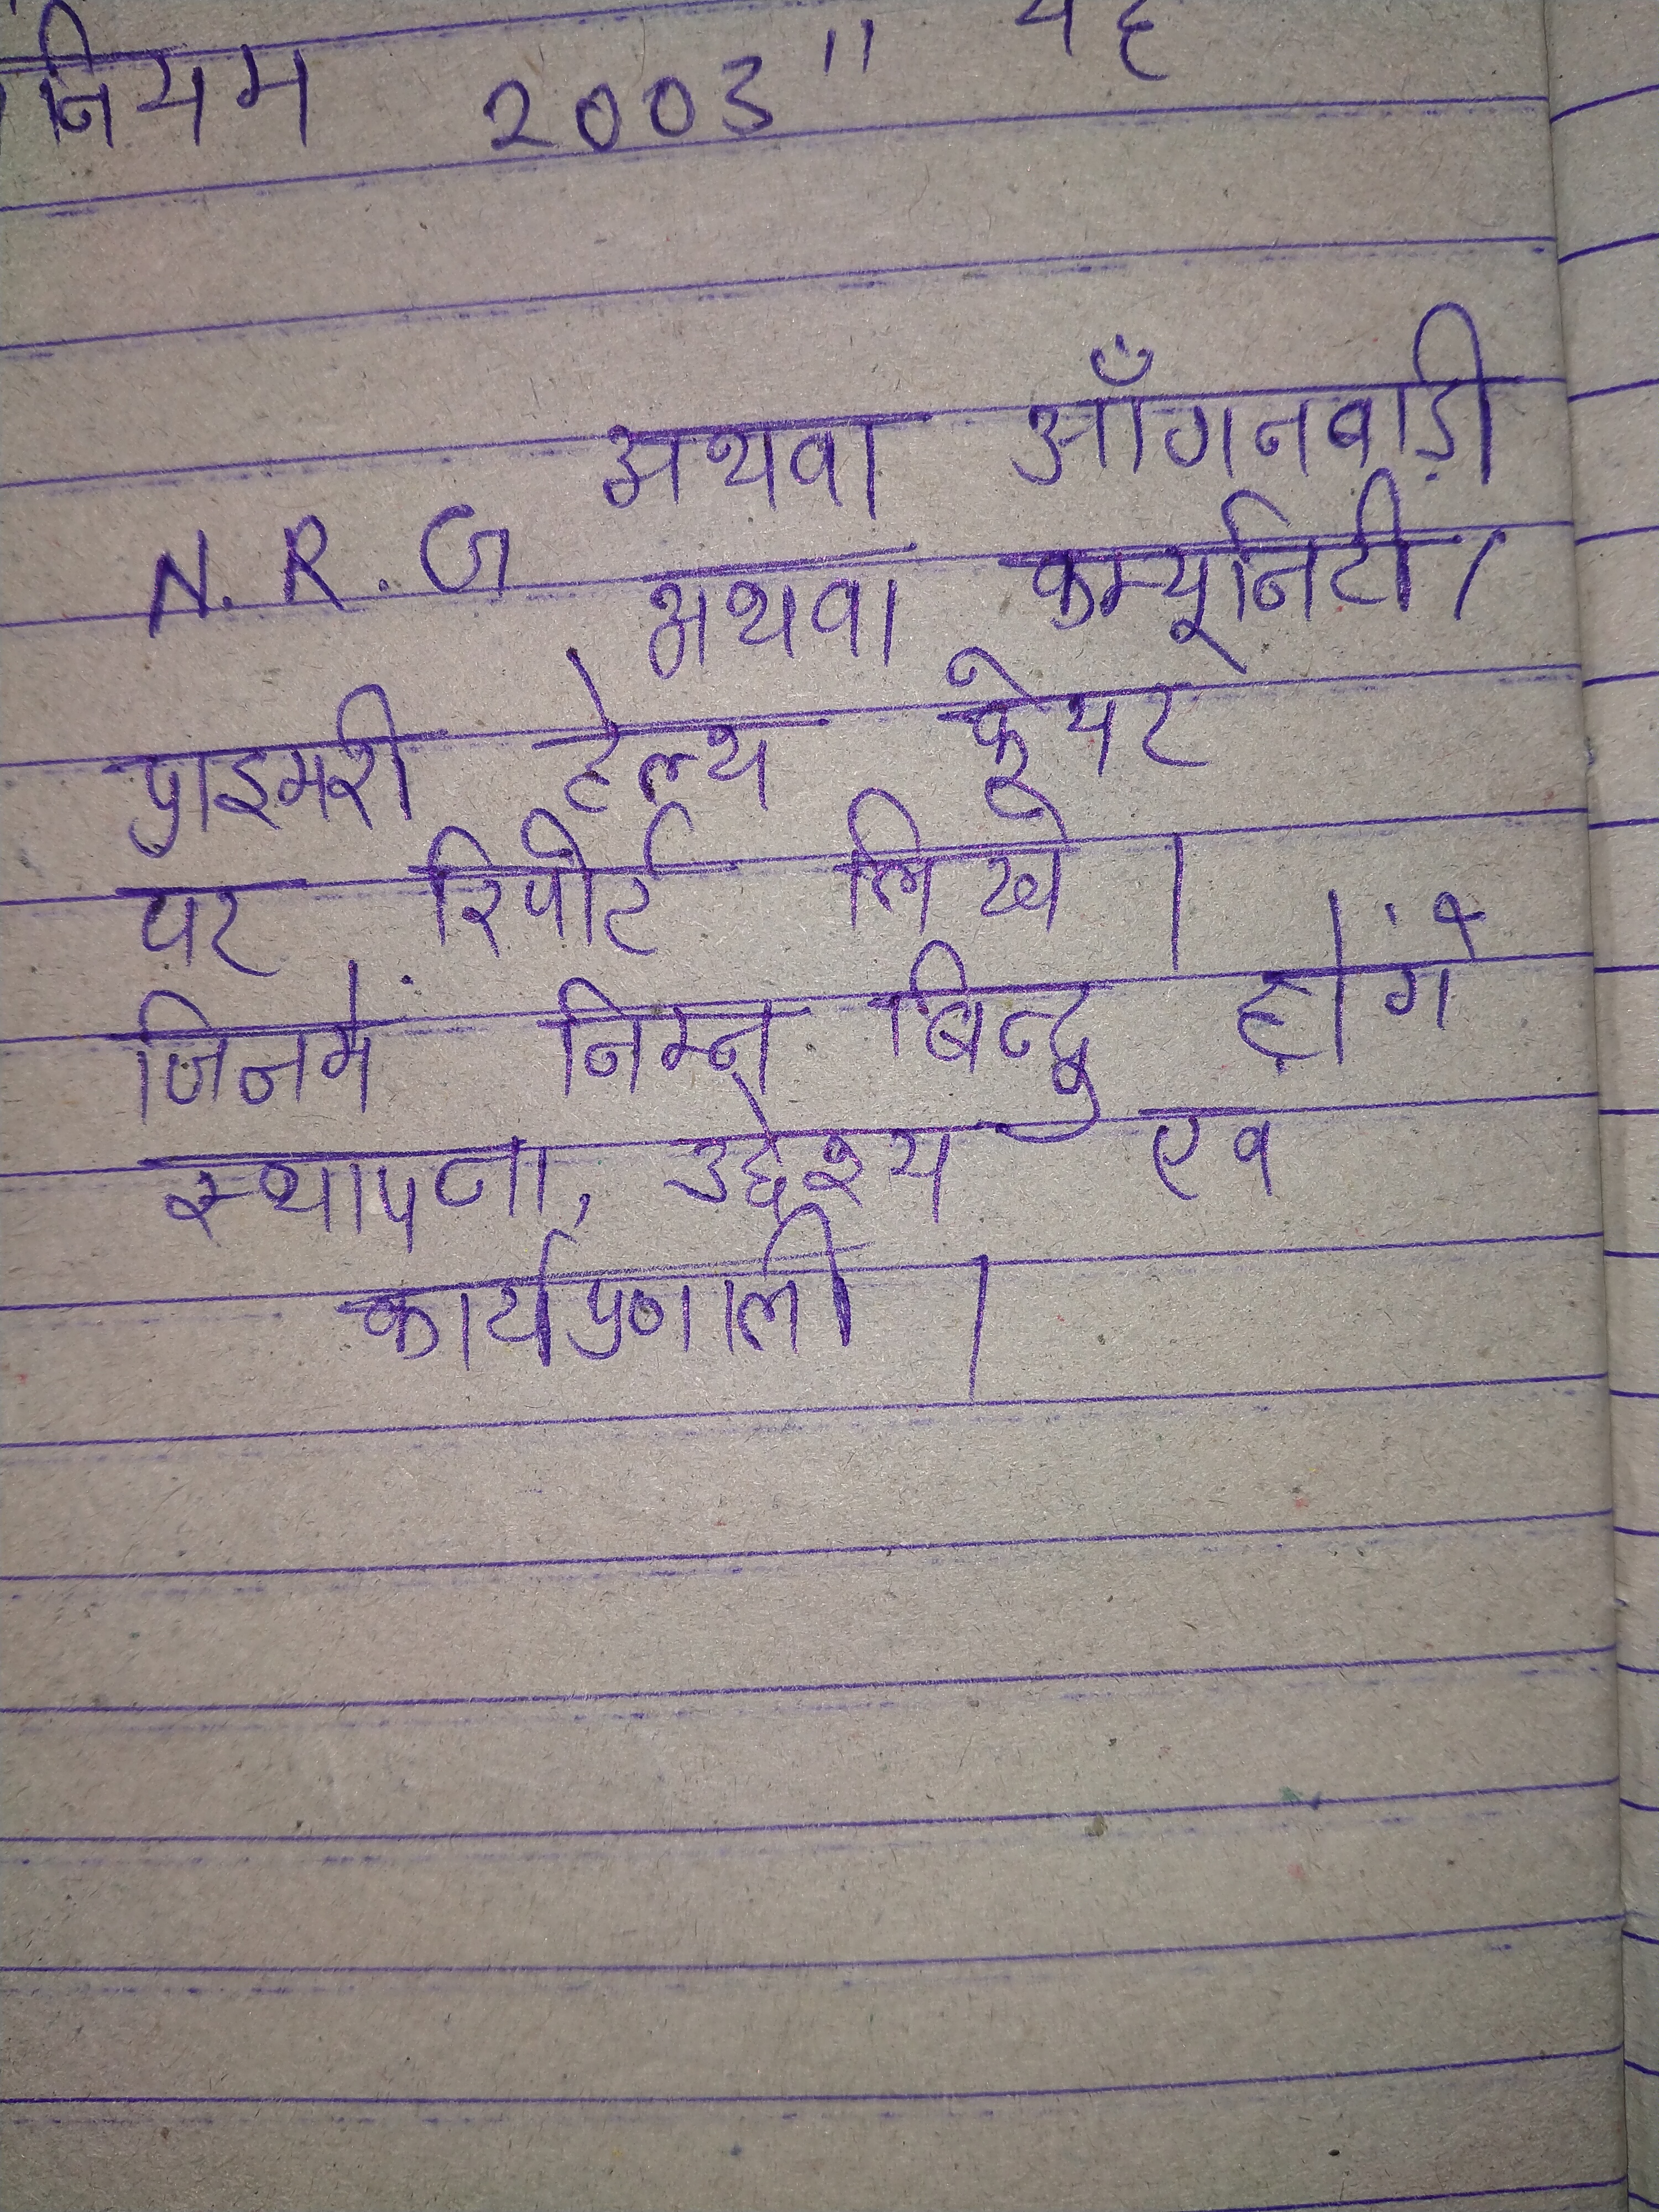 नियम 2003"
अथवा आँगनबाड़ी
N.R.C अथवा कम्यूनिटी/
प्राइमरी हेल्थ केयर
पर रिपोर्ट लिखे ।
जिनमें निम्न बिन्दु होंगे
स्थापना, उद्देश्य एव
कार्यप्रणाली ।